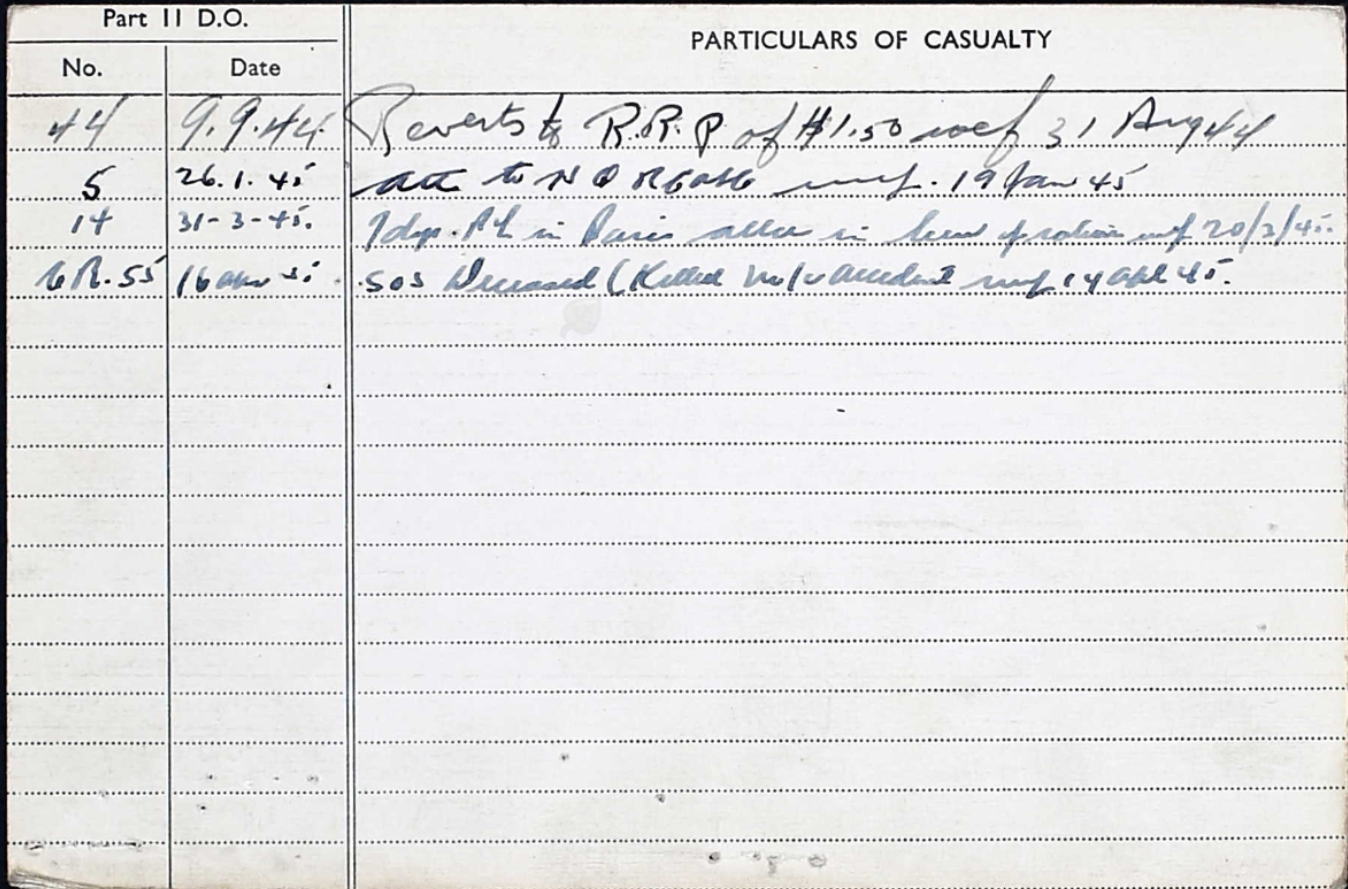 Part II D.O.
PARTICULARS OF CASUALTY
No. Date
44 9.9.44 Reverts to R.R.P. of $1.50 wef 31 Aug 44
5 26.1.45 att to wef. 19 Jan 45
14 31-3-45. P.L. in Paris in lieu of ration wef 20/3/45.
16 45 SOS Deceased (Killed accident wef 14 Apl 45.